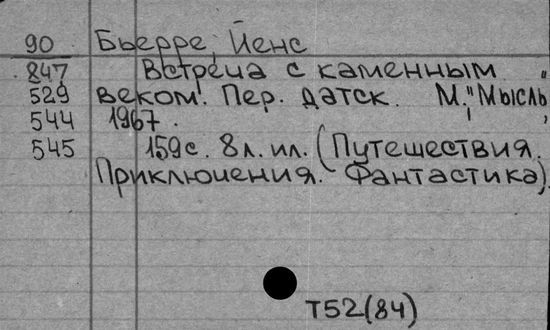 90 Бьерре, Йенс
847 Встреча с каменным
529 веком. Пер. датск. М., "Мысль",
544 1967.
545 159с. 8л. ил. (Путешествия.
Приключения. Фантастика).
Т52(84)